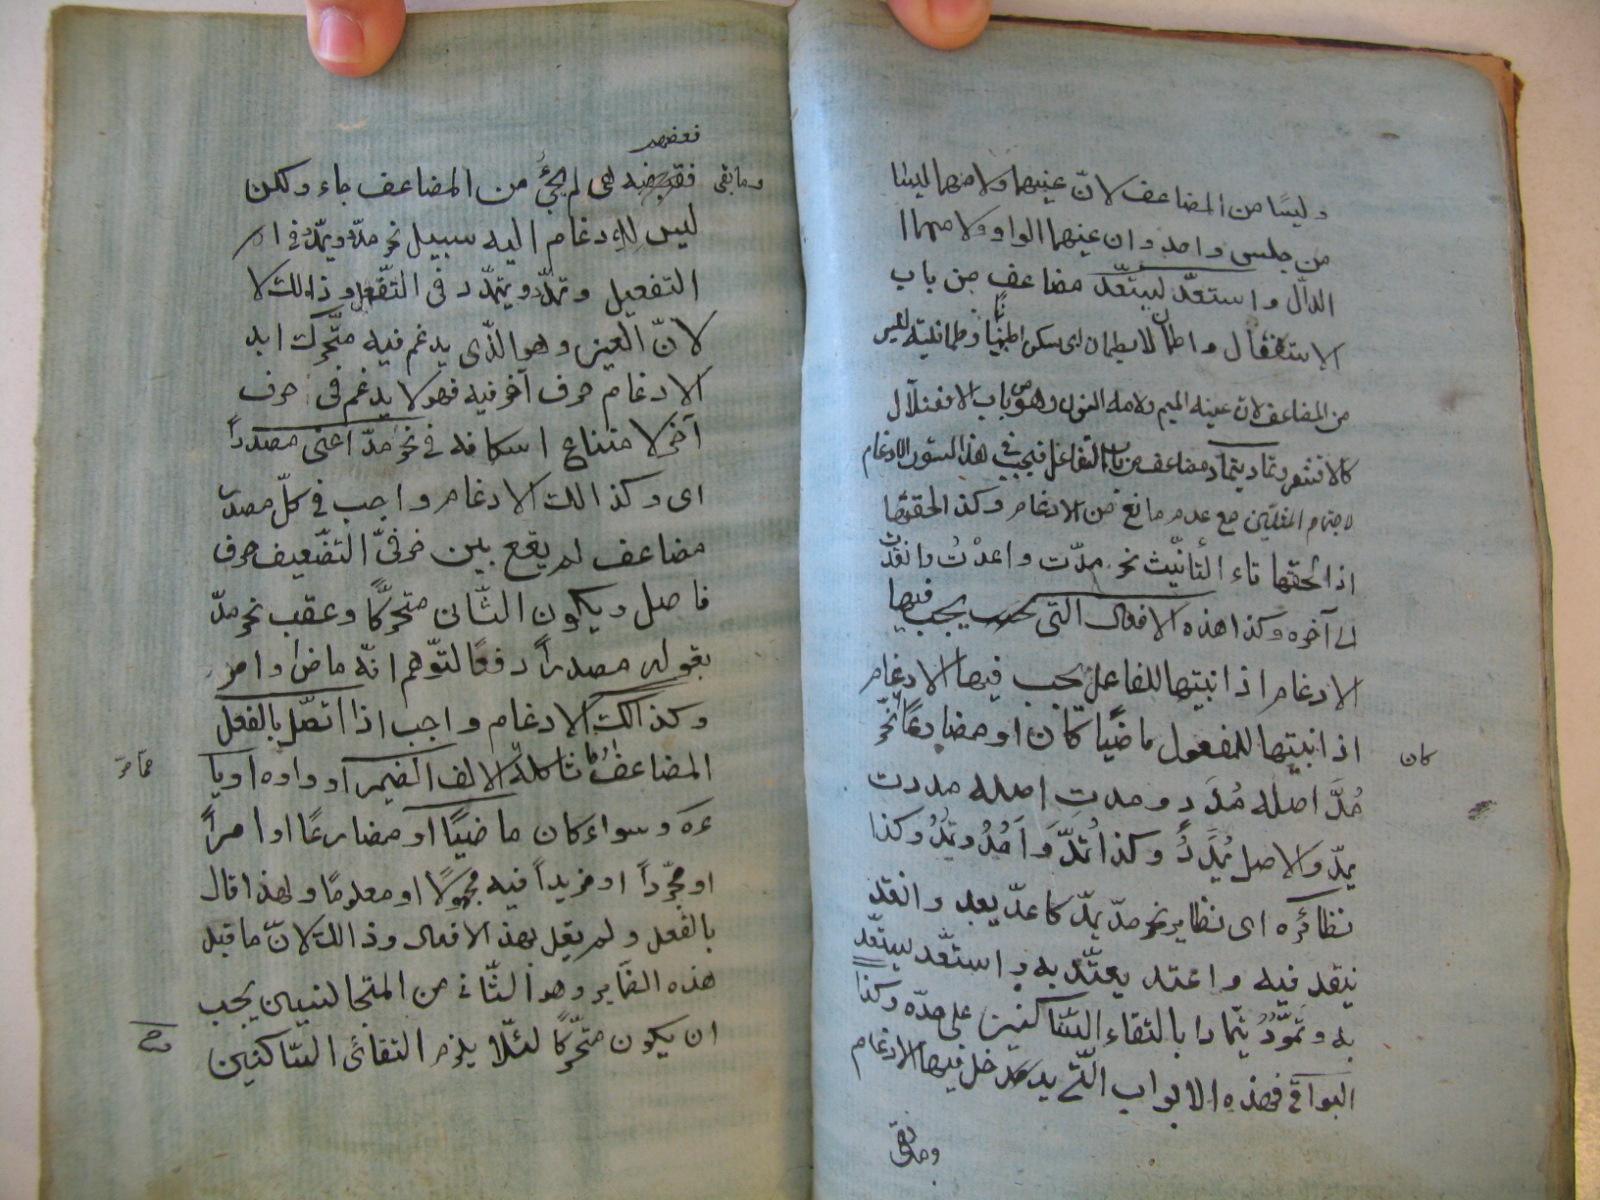 وليسا من المضاعف لانّ عينهما ولامهما ليسا
من جلس واحد وان عينهما الواو ولامهما
الدّال واستعدّ ليستعدّ مضاعف من باب
الاستفعال واطمأن يطمان اى سكن اطمينانا وطمانينة ليس
من المضاعف لان عينه الميم ولامه النون وهو من باب الافعنلال
كالاقشعر وتماد يتماد مضاعف من باب التفاعل فيجب في هذا الادغام
لاجتماع المثلين مع عدم مانع من الادغام وكذ الحقتها
اذا لحقتها تاء التأنيّث نحو مدّت واعدّت وانقدّت
الى آخره وكذا هذه الافعال التى يجب فيها
الادغام اذا بنيتها للفاعل يجب فيها الادغام
اذا بنيتها للمفعول ماضيًا كان او مضارعًا نحو
كان
مُدَّ اصله مُدَدَ ومدت اصله مددت
يمدّ والاصل يُمدَدُ وكذا تمدّ وأمدُّ ونمدُّ وكذا
نظائره اى نظاير نحو مدّ يمدّ كاعدّ يعد وانقد
ينقد فيه واعتد يعتدّ به واستعّد ليستعّد
به وتموّدّ يتمادا بالتقاء السّاكنين على حدّه وكذا
البواقى فهذه الابواب الّتى يدخل فيها الادغام
وما بقى
فبعضهم
وما بقى
لم يجئ من المضاعف جاء ولكن
ليس للادغام اليه سبيل نحو مدّد ويمدّد فى
التفعيل وتمدّد ويتمدّد فى التّفعل وذالك لا
لانّ العين وهو الذّى يدغم فيه متّحرك ابد
الادغام حرف آخر فيه فهو لا يدغم فى حرف
آخر لامتناع اسكانه فى نحو مدّ اعنى مصدراً
اى وكذالك الادغام واجب فى كلّ مصدر
مضاعف لم يقع بين حرفىّ التضّعيف حرف
فاصل ويكون الثّانى متحرّكًا وعقب نحو مدّ
بقوله مصدراً دفعًا لتوّهم انّه ماض او امر
وكذالك الادغام واجب اذا اتصّل بالفعل
المضاعف الالف الضمير او واوه او يا
ءه وسواء كان ماضيًا او مضارعًا او امراً
او مجّرداً او مزيداً فيه مجهولًا او معلومًا ولهذا قال
بالفعل ولم يقل بهذ الافعال وذالك لانّ ما قبل
هذه الضماير وهو الثّانى من المتجانسين يجب
ان يكون متحّركًا لئلّا يلزم التقائى السّاكنين